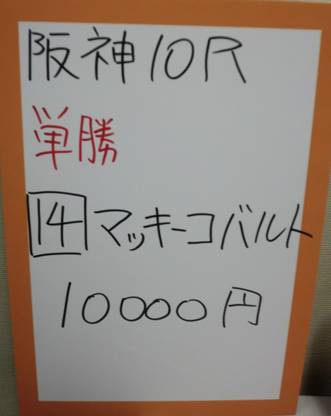 阪神10R
単勝
14 マッキーコバルト
10000円